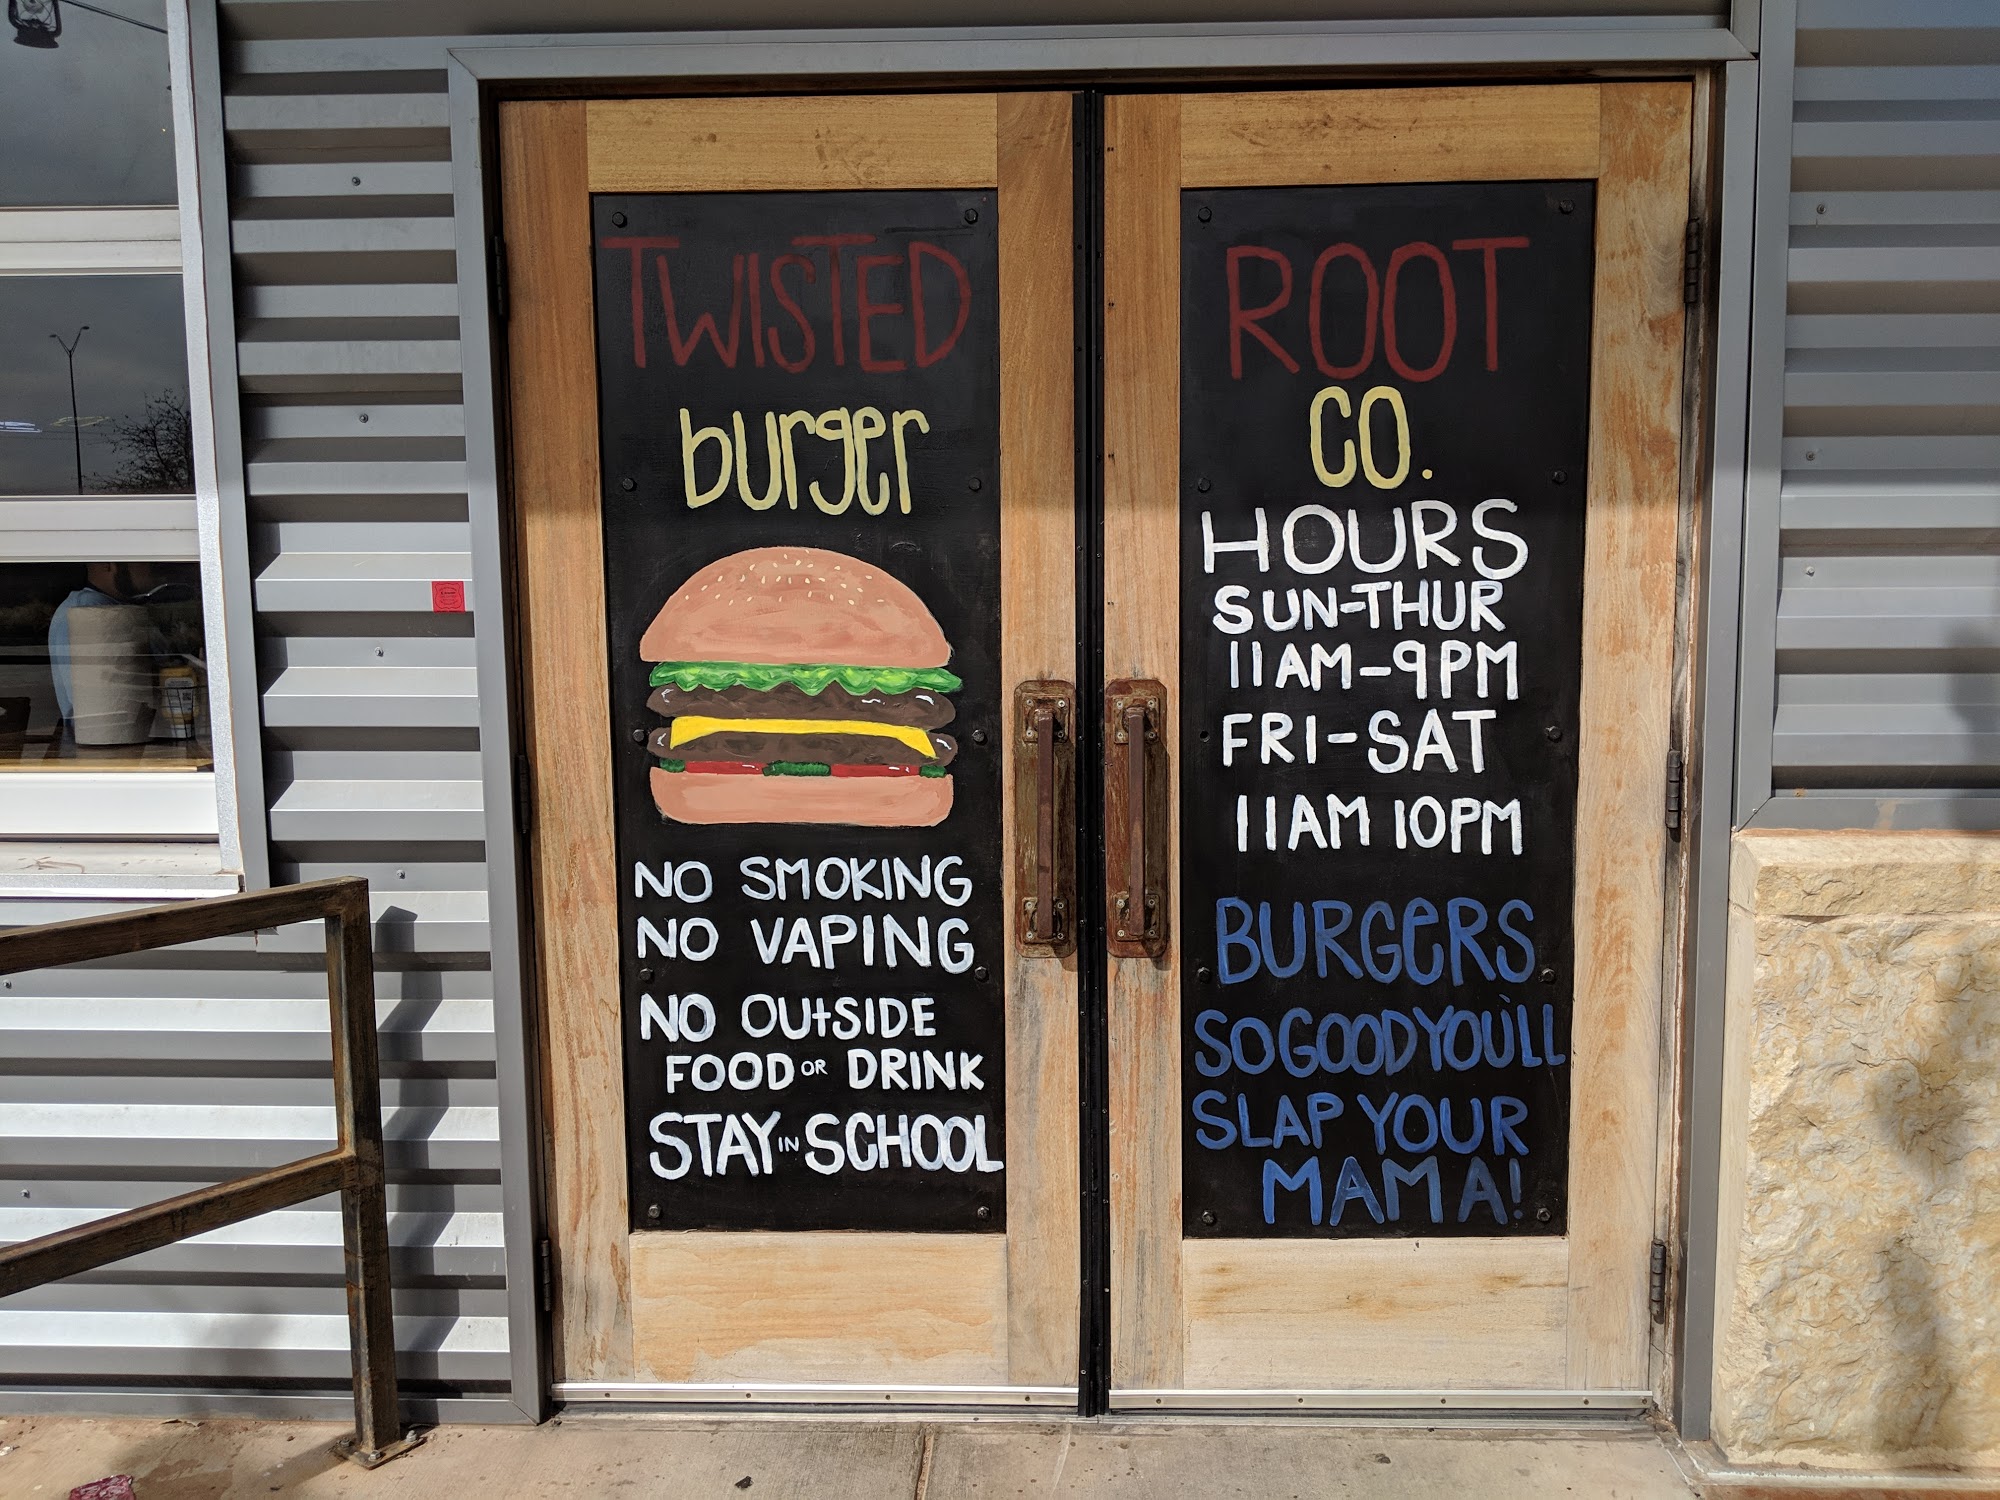 TWISTED ROOT
burger CO.
HOURS
SUN-THUR
11AM-9PM
FRI-SAT
11AM 10PM
NO SMOKING
NO VAPING
NO OUtSIDE
FOOD OR DRINK
STAY IN SCHOOL
BURGeRS
SO GOOD YOU'LL
SLAP YOUR
MAMA!